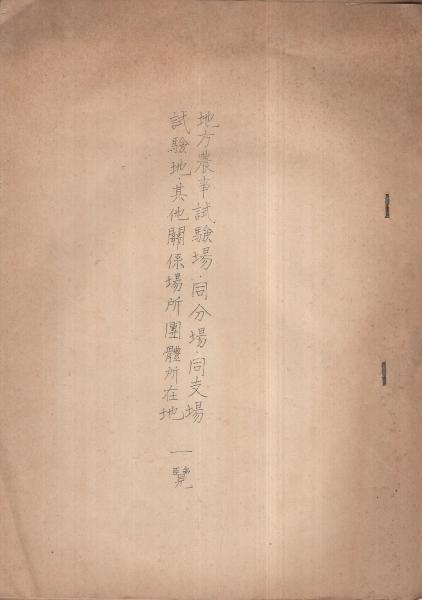 地方農事試驗場・同分場・同支場
試驗地・其他關係場所團體所在地
一覽